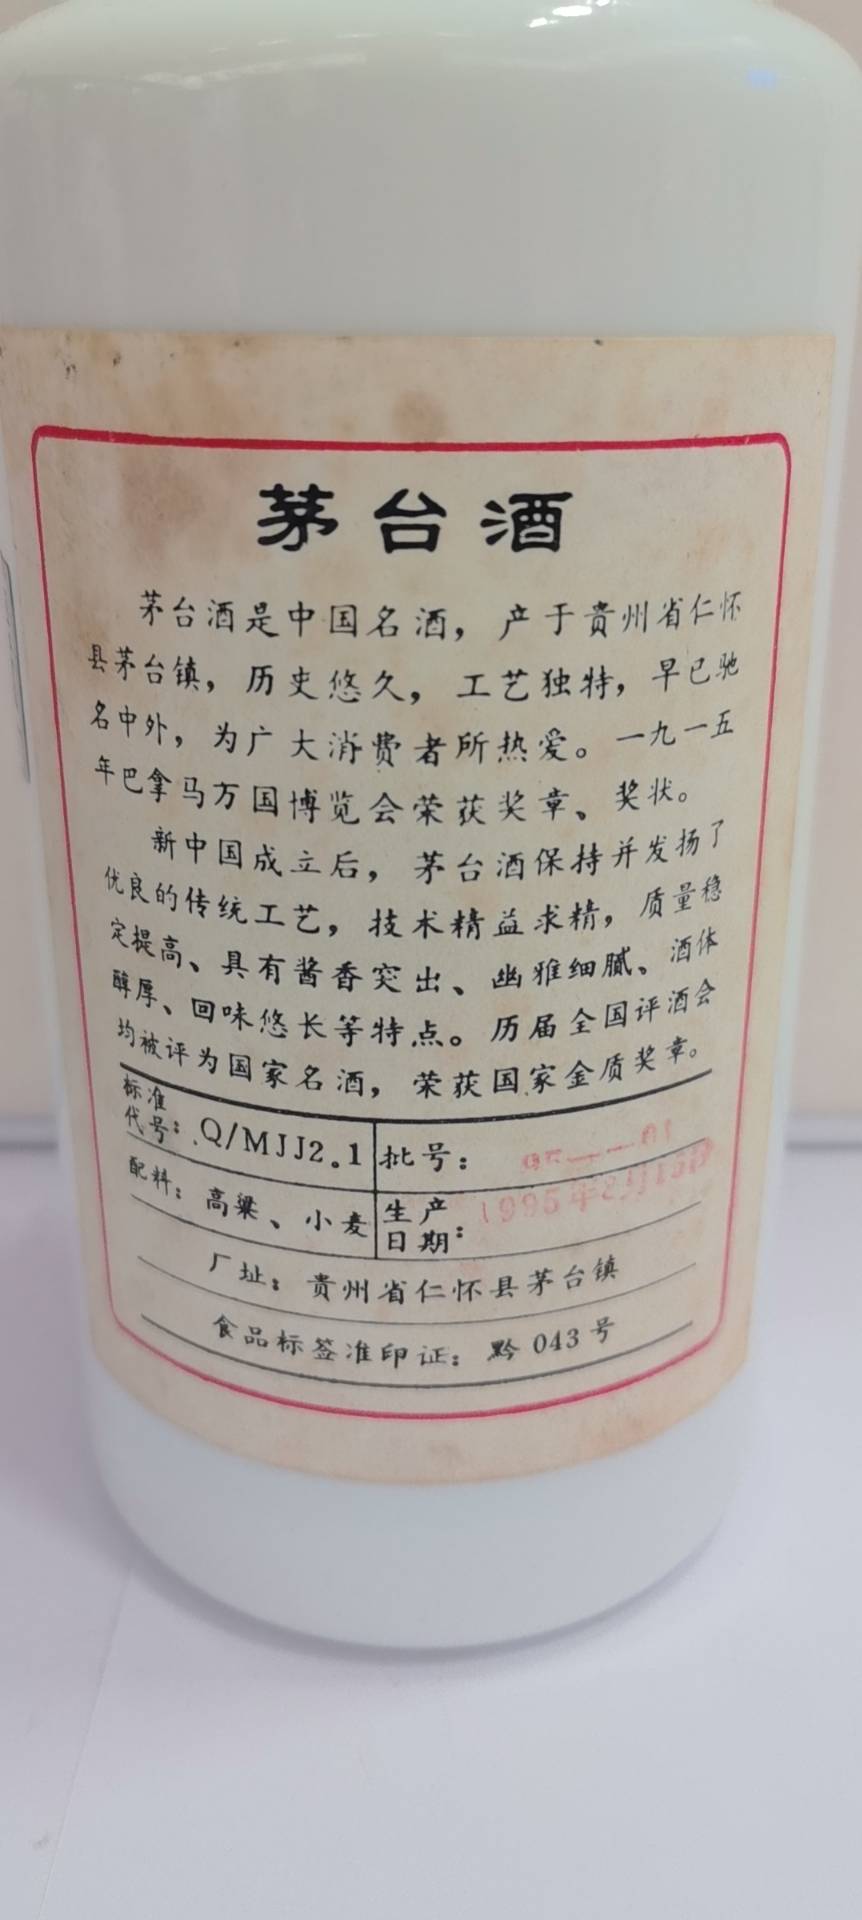 茅台酒
茅台酒是中国名酒，产于贵州省仁怀
县茅台镇，历史悠久，工艺独特，早已驰
名中外，为广大消费者所热爱。一九一五
年巴拿马万国博览会荣获奖章、奖状。
新中国成立后，茅台酒保持并发扬了
优良的传统工艺，技术精益求精，质量稳
定提高、具有酱香突出、幽雅细腻、酒体
醇厚、回味悠长等特点。历届全国评酒会
均被评为国家名酒，荣获国家金质奖章。
标准代号：Q/MJJ2.1 批号：95—01
配料：高粱、小麦 生产日期：1995年
厂址：贵州省仁怀县茅台镇
食品标签准印证：黔043号